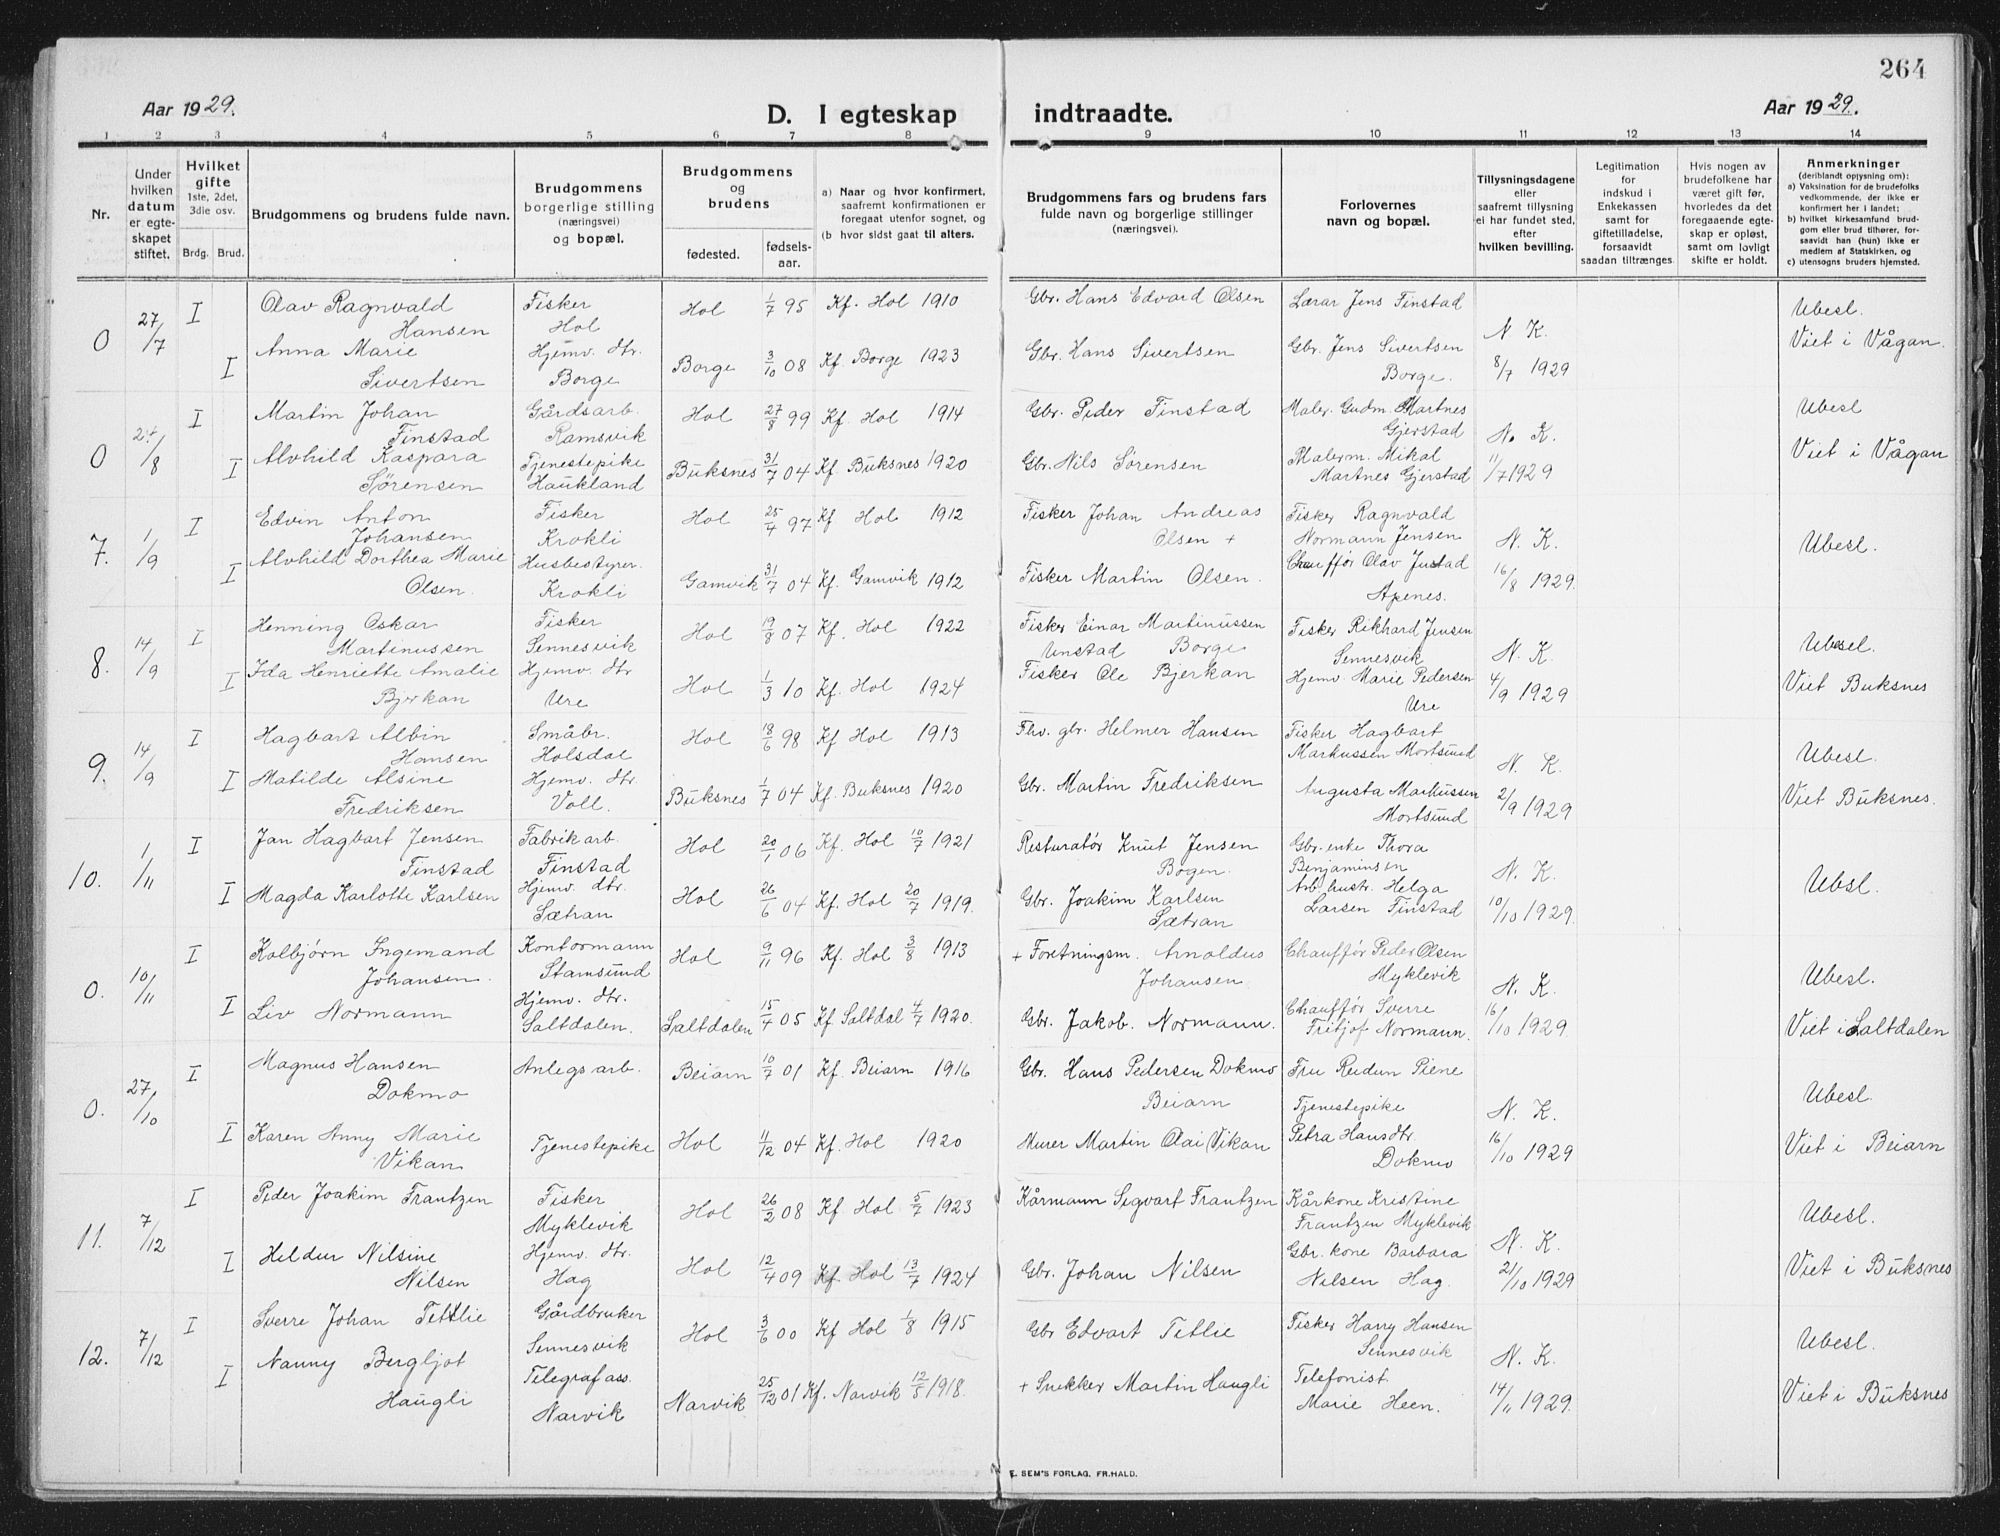 264
Aar 1929.
D. I egteskap indtraadte.
Aar 1929.
1 2 3 4 5 6 7 8 9 10 11 12 13 14
Nr.
Under hvilken datum er egteskapet stiftet.
Hvilket gifte 1ste, 2det, 3die osv.
Brdg. Brud.
Brudgommens og brudens fulde navn.
Brudgommens borgerlige stilling (næringsvei) og bopæl.
Brudgommens og brudens
fødested.
fødselsaar.
a) Naar og hvor konfirmert, saafremt konfirmationen er foregaat utenfor sognet, og
(b hvor sidst gaat til alters.
Brudgommens fars og brudens fars fulde navn og borgerlige stillinger (næringsvei).
Forlovernes navn og bopæl.
Tillysningsdagene eller saafremt tillysning ei har fundet sted, efter hvilken bevilling.
Legitimation for indskud i Enkekassen samt for giftetilladelse, forsaavidt saadan tiltrænges.
Hvis nogen av brudefolkene har været gift før, hvorledes da det foregaaende egteskap er opløst, samt om lovligt skifte er holdt.
Anmerkninger (deriblandt oplysning om):
a) Vaksination for de brudefolks vedkommende, der ikke er konfirmert her i landet;
b) hvilket kirkesamfund brudgom eller brud tilhører, forsaavidt han (hun) ikke er medlem af Statskirken, og
c) utensogns bruders hjemsted.
0 27/7 I Olav Ragnvald Hansen Fisker Hol Hol 1/7 95 Kf. Hol 1910 Gbr. Hans Edvard Olsen Lærar Jens Finstad N. K. 8/7 1929 Ubesl. Viet i Vågan.
I Anna Marie Sivertsen Hjemv. dtr. Borge Borge 3/10 08 Kf. Borge 1923 Gbr. Hans Sivertsen Gbr. Jens Sivertsen Borge.
0 24/8 I Martin Johan Finstad Gårdsarb. Ramsvik Hol 27/8 99 Kf. Hol 1914 Gbr. Peder Finstad Maler. Gudm. Martnes Gjerstad N. K. 11/7 1929 Ubesl Viet i Vågan
I Alvhild Kaspara Sørensen Tjenestepike Haukland Buksnes 31/7 04 Kf. Buksnes 1920 Gbr. Nils Sørensen Malerm. Mikal Martnes Gjerstad
7. 1/9 I Edvin Anton Johansen Fisker Krokli Hol 25/4 97 Kf Hol 1912 Fisker Johan Andreas Olsen + Fisker Ragnvald Normann Jensen N. K. 16/8 1929. Ubesl.
I Alvhild Dorthea Marie Olsen. Husbestyrer. Krokli Gamvik 31/7 04 Kf. Gamvik 1912 Fisker Martin Olsen. Chauffør Olav Justad Apenes.
8. 14/9 I Henning Oskar Martinussen Fisker Sennesvik Hol 19/8 07 Kf. Hol 1922 Fisker Einar Martinussen Unstad Borge Fisker Rikhard Jensen Sennesvik N. K. 4/9 1929 Ubesl. Viet Buksnes
I Ida Henriette Amalie Bjerkan Hjemv. dtr Ure Hol 1/3 10 Kf. Hol 1924 Fisker Ole Bjerkan Hjemv. Marie Pedersen Ure
9. 14/9 I Hagbart Albin Hansen Småbr. Holsdal Hol 18/6 98 Kf Hol 1913 Fhv. gbr. Helmer Hansen Fisker Hagbart Markussen Mortsund N. K. 2/9 1929 Ubesl. Viet Buksnes.
I Matilde Alsine Fredriksen Hjemv. dtr Voll. Buksnes 1/7 04 Kf. Buksnes 1920 Gbr. Martin Fredriksen Augusta Markussen Mortsund
10. 1/11 I Jan Hagbart Jensen Finstad Fabrikarb. Finstad Hol 20/1 06 Kf. Hol 10/7 1921 Resturatør Knut Jensen Bogen. Gbr. enke Thora Benjaminsen N. K. 10/10 1929. Ubesl.
I Magda Karlotte Karlsen Hjemv. dtr. Sætran Hol 26/6 04 Kf. Hol 20/7 1919. Gbr. Joakim Karlsen Sætran Arb. hustr. Helga Larsen Finstad
0. 10/11 I Kolbjørn Ingemand Johansen. Kontormann Stamsund Hol 9/11 96 Kf. Hol 3/8 1913 + Foretningsm. Arnoldus Johansen Chauffør Peder Olsen Myklevik N. K. 16/10 1929 Ubesl. Viet i Saltdalen
I Liv Normann Hjemv. dtr. Saltdalen. Saltdalen 15/4 05 Kf. Saltdal 4/7 1920. Gbr. Jakob. Normann. Chauffør Sverre Fritjof Normann.
0. 27/10 I Magnus Hansen Dokmo Anlegsarb. Beiarn 10/7 01 Kf. Beiarn 1916 Gbr. Hans Pedersen Dokmo Beiarn Fru Reidun Piene N. K. 16/10 1929 Ubesl. Viet i Beiarn
I Karen Anny Marie Vikan Tjenestepike Hol 11/12 04 Kf. Hol 1920 Murer Martin Olai Vikan Tjenestepike Petra Hansdtr. Dokmo
11. 7/12 I Peder Joakim Frantzen Fisker Myklevik Hol 26/2 08 Kf Hol 5/7 1923 Kårmann Sigvart Frantzen Kårkone Kristine Frantzen Myklevik N. K. 21/10 1929 Ubesl. Viet i Buksnes
I Heldur Nilsine Nilsen Hjemv. dtr. Hag Hol 12/4 09 Kf. Hol 13/7 1924 Gbr. Johan Nilsen Gbr. kone Barbara Nilsen Hag.
12. 7/12 I Sverre Johan Tetlie Gårdbruker Sennesvik Hol 3/6 00 Kf Hol 1/8 1915 Gbr Edvart Tetlie Fisker Harry Hansen Sennesvik N. K. 14/11 1929. Ubesl. Viet i Buksnes
I Nanny Bergljot Haugli Telegrafass. Narvik Narvik 25/12 01 Kf. Narvik 12/5 1918. + Snekker Martin Haugli Telefonist Marie Heen.
E. SEM'S FORLAG, FR.HALD.